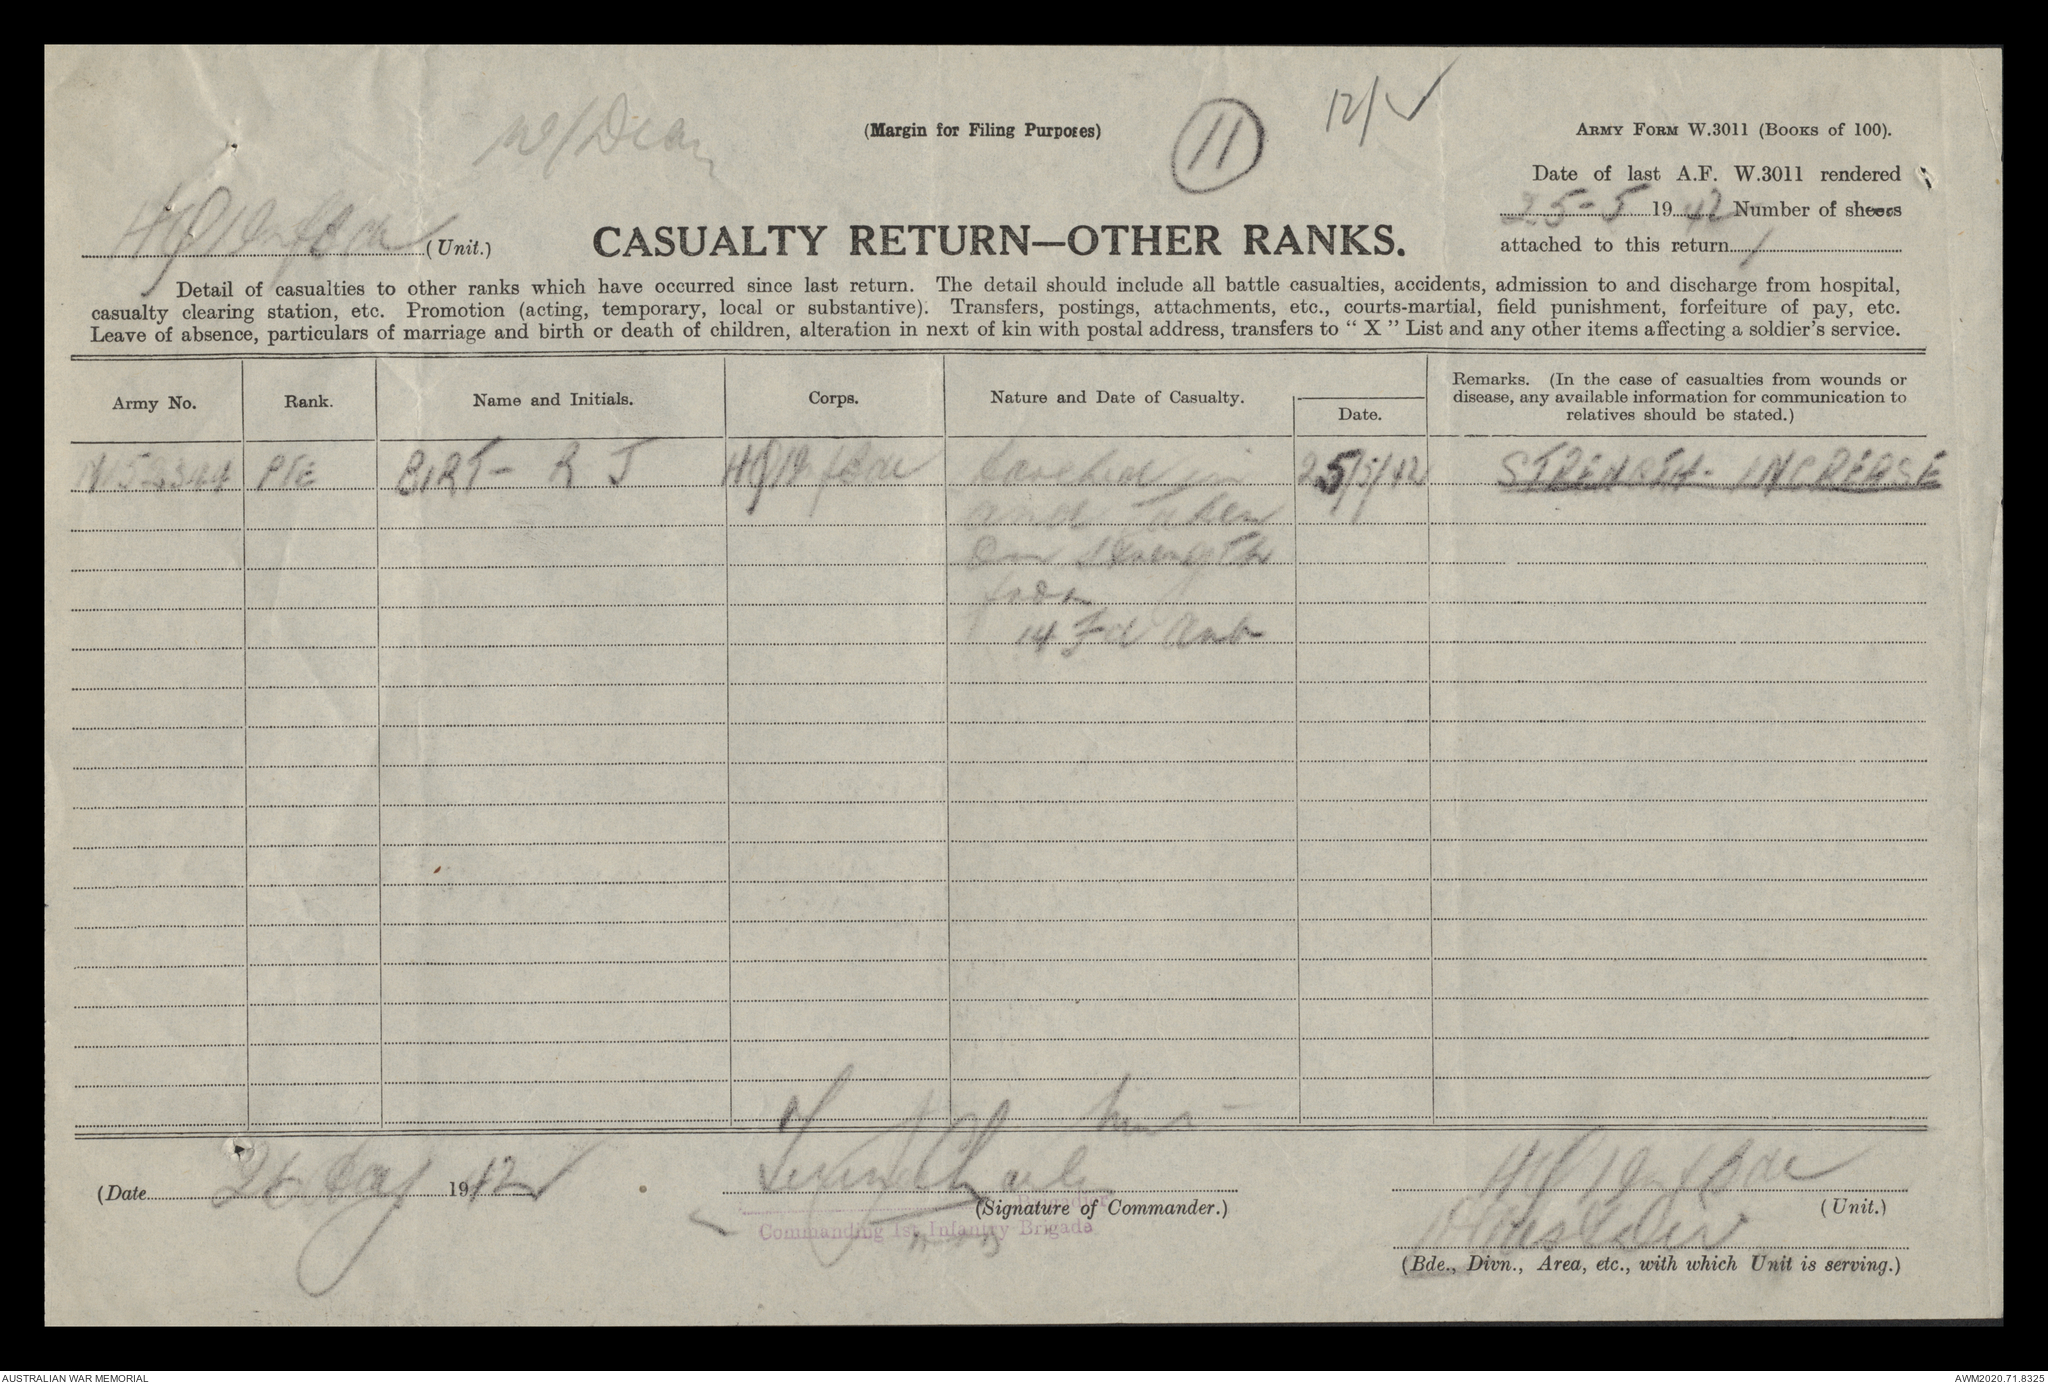 W/Diary
(Margin for Filing Purposes)
11
12/✓
ARMY FORM W.3011 (BOOKS OF 100).
Date of last A.F. W.3011 rendered
25-5 1942 Number of sheets
attached to this return 1
HQ 1 Inf Bde (Unit.)
CASUALTY RETURN—OTHER RANKS.
Detail of casualties to other ranks which have occurred since last return. The detail should include all battle casualties, accidents, admission to and discharge from hospital,
casualty clearing station, etc. Promotion (acting, temporary, local or substantive). Transfers, postings, attachments, etc., courts-martial, field punishment, forfeiture of pay, etc.
Leave of absence, particulars of marriage and birth or death of children, alteration in next of kin with postal address, transfers to “ X ” List and any other items affecting a soldier's service.
Army No. Rank. Name and Initials. Corps. Nature and Date of Casualty. Date. Remarks. (In the case of casualties from wounds or
disease, any available information for communication to
relatives should be stated.)
N152344 PTE BIRT - R J HQ 1 Inf Bde Marched in 25/5/42 STRENGTH - INCREASE
and Taken
on strength
from
14 Fd Amb
(Date 26 May 1942
(Signature of Commander.)
Brigadier
Commanding 1st Infantry Brigade
HQ 1 Inf Bde
(Unit.)
1 Aust Div
(Bde., Divn., Area, etc., with which Unit is serving.)
AUSTRALIAN WAR MEMORIAL
AWM2020.71.8325